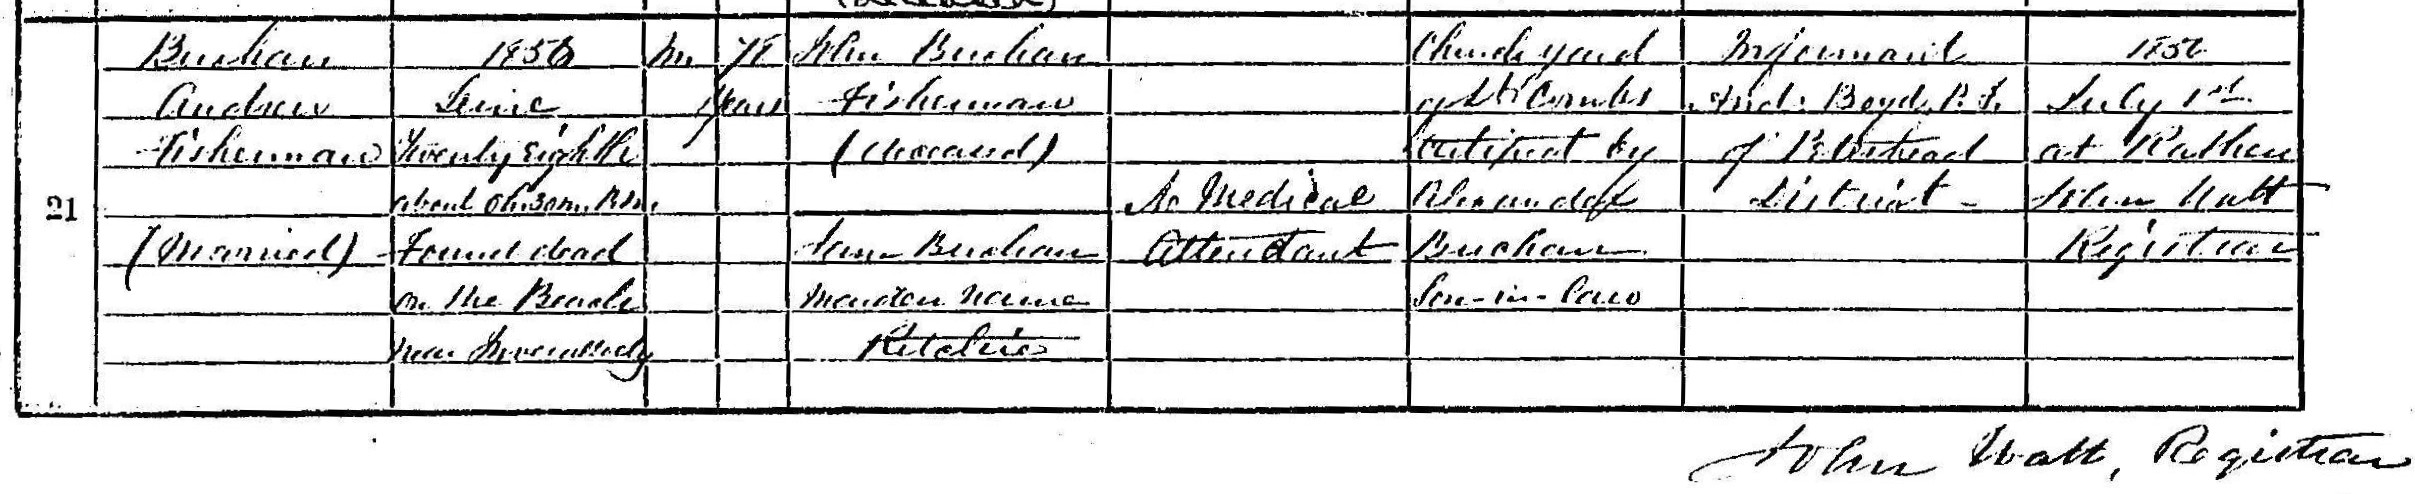 21
Buchan
Andrew
Fisherman
(Married)
1856
June
Twenty eighth
about 0h. 30m. P.M.
Found dead
on the Beach
near Inverallochy
M.
78
Years
John Buchan
Fisherman
(deceased)
Jane Buchan
maiden name
Ritchie
No Medical
Attendant
Church yard
of St Combs
Certified by
Alexander
Buchan
Son-in-law
Informant
And. Boyd, P.F.
of Peterhead
District -
1856
July 1st
at Rathen
John Watt
Registrar
John Watt, Registrar